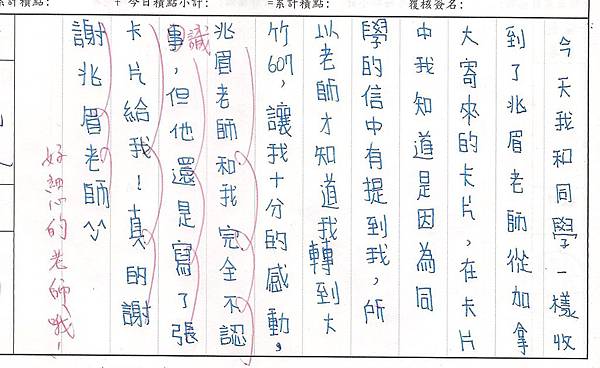 累計積點:
+ 今日積點小計:
=累計積點:
覆核簽名:
今天我和同學一樣收
到了兆眉老師從加拿
大寄來的卡片,在卡片
中我知道是因為同
學的信中有提到我,所
以老師才知道我轉到大
竹607,讓我十分的感動。
兆眉老師和我完全不認
識
事,但他還是寫了張
卡片給我!真的謝
謝兆眉老師^^
好熱心的老師哦!